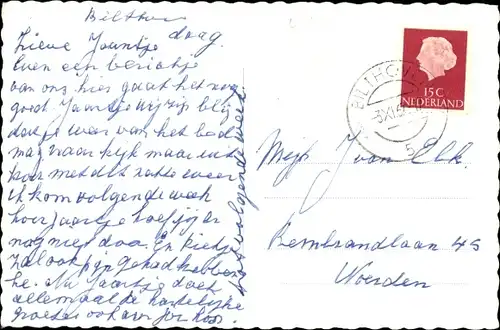 Bilthoven
Lieve Jaantje daag.
Even een berichtje
van ons hier gaat het nog
goed Jaantje wij zijn blij
dat je weer van het bed
mag vaar kijk maar uit
hoor met
ik kom volgende week
hoor Jaantje hoef jij er
nog niet
zal ook pijn gehad hebben
he. Nu Jaantje doeg
allemaal de hartelijke
groeten ook
tot volgende week
15 C
NEDERLAND
BILTHOVEN
5
Mej. J van Eck
Rembrandlaan 45
Woerden